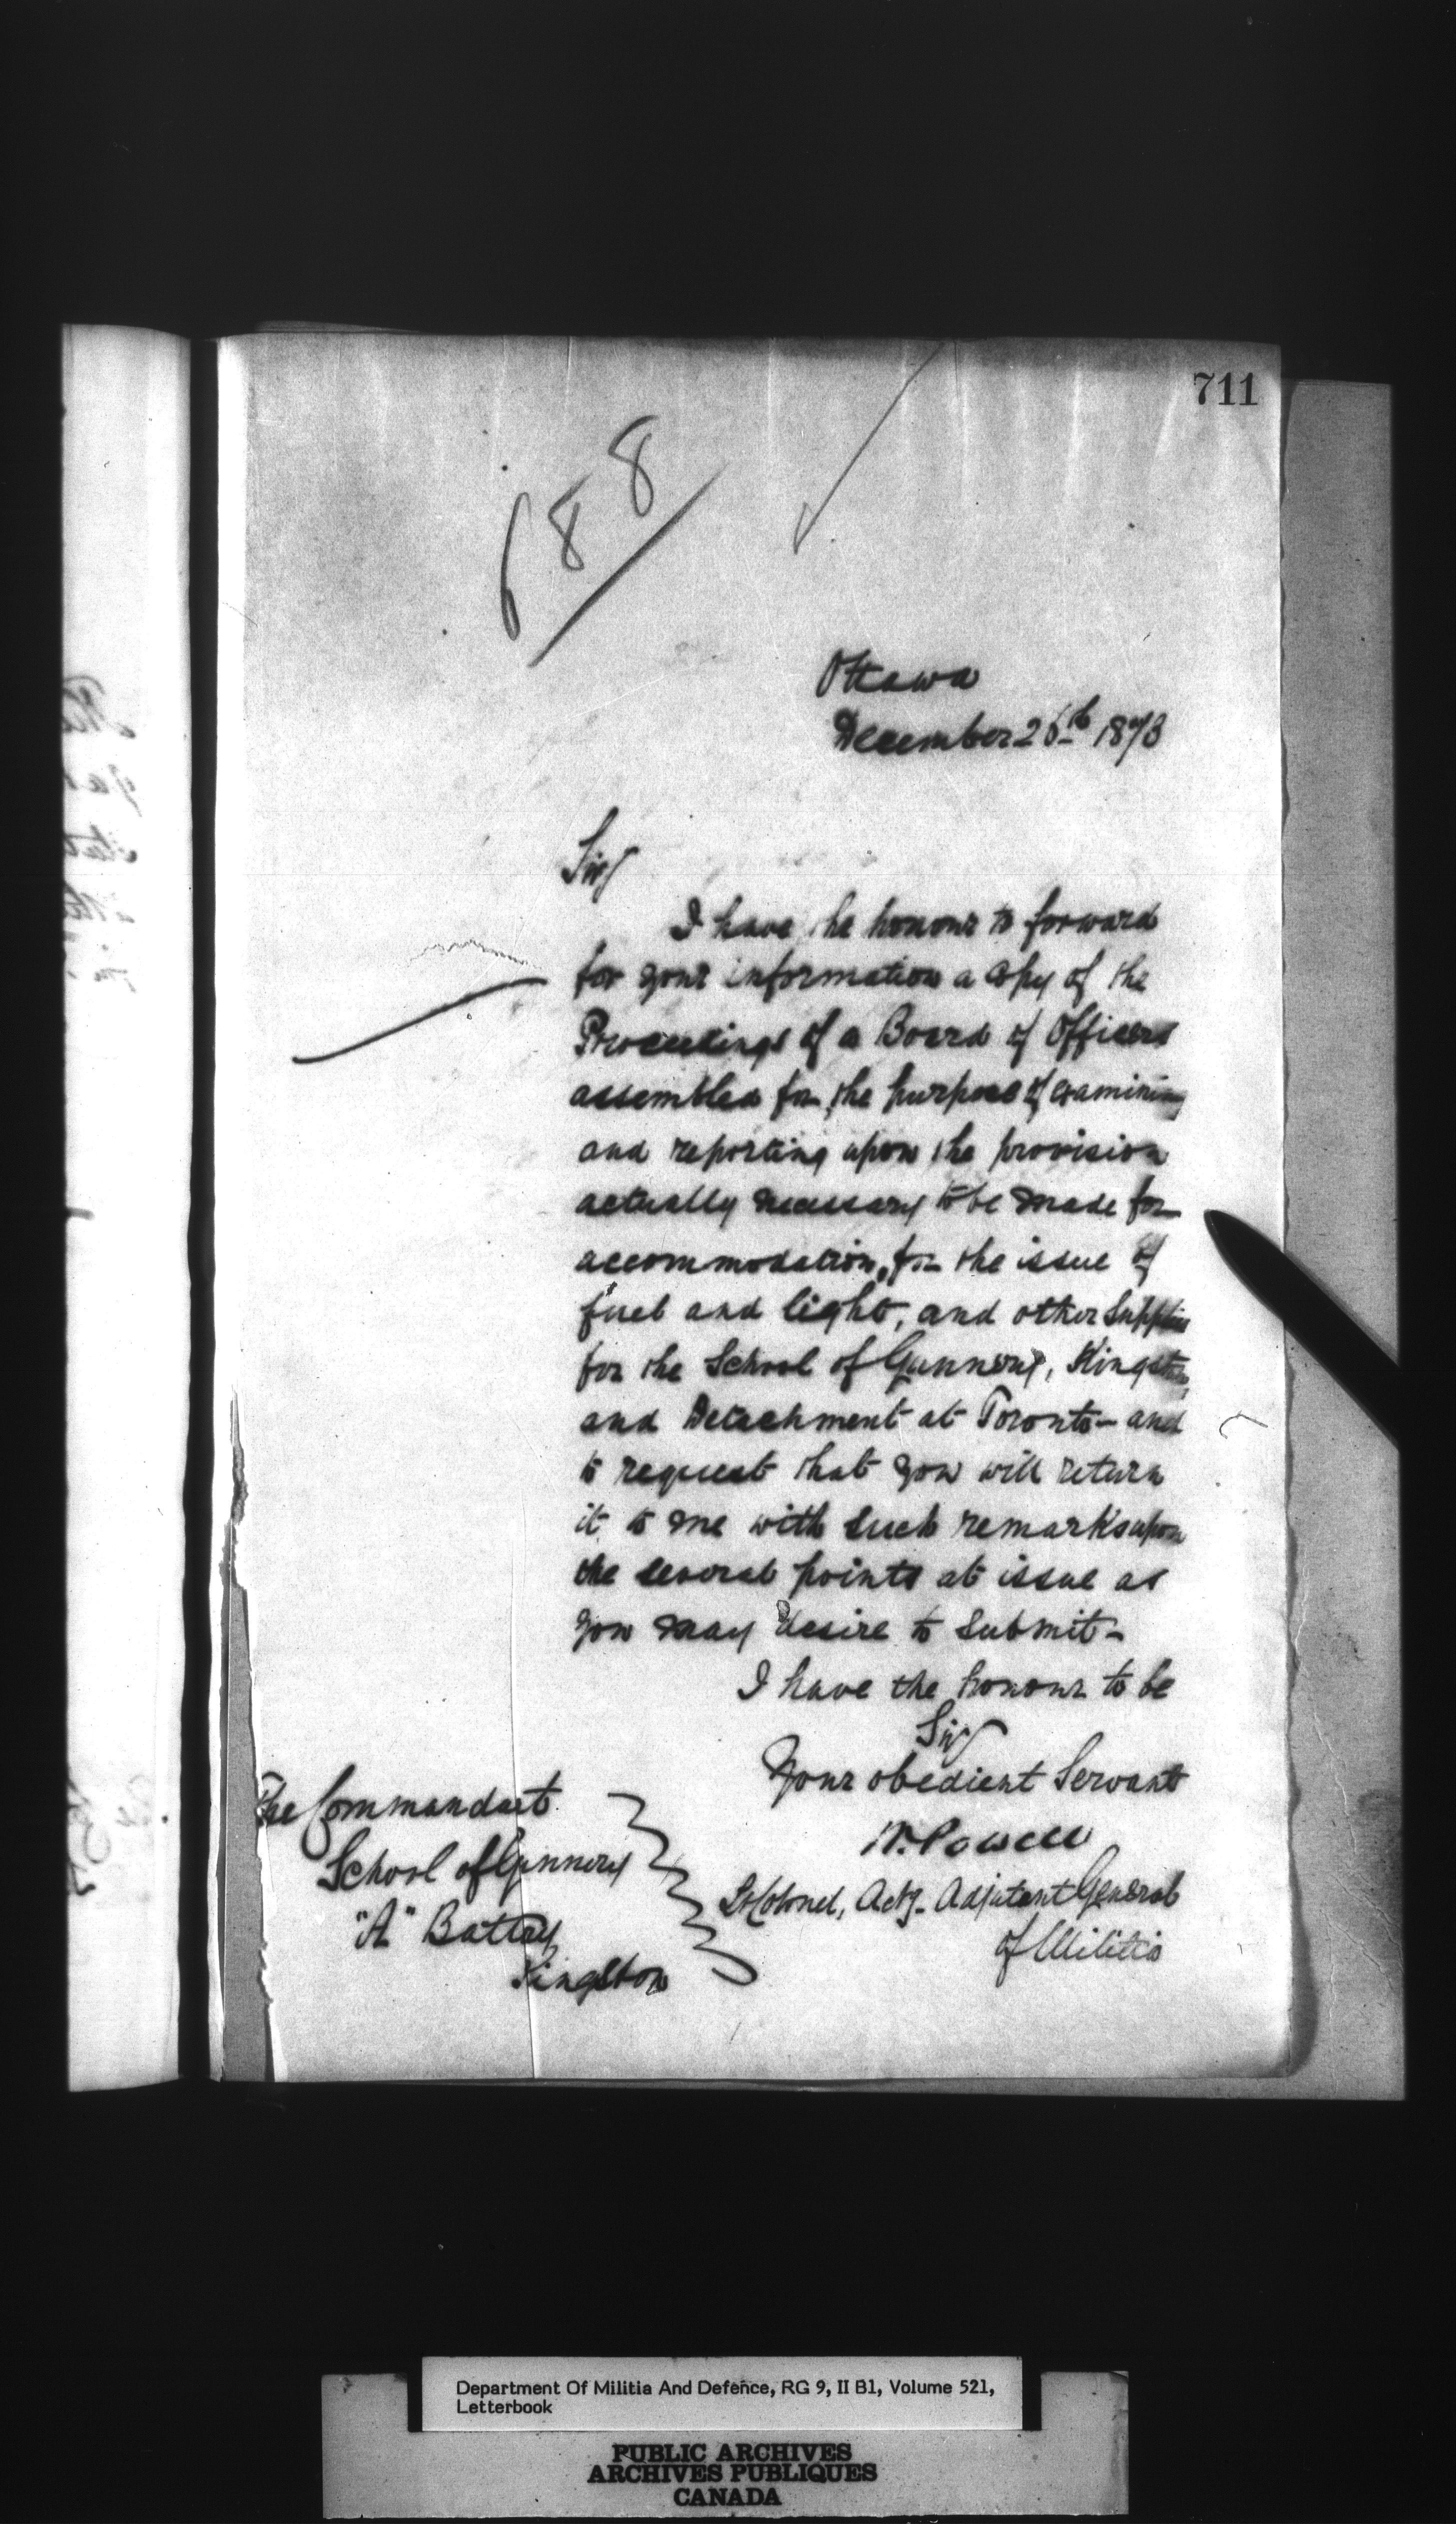 711
688
Ottawa
December 26th 1873
Sir
I have the honour to forward
for your information a copy of the
Proceedings of a Board of Officers
assembled for the purpose of examining
and reporting upon the provision
actually necessary to be made for
accommodation, for the issue of
fuel and light, and other supplies
for the School of Gunnery, Kingston,
and Detachment at Toronto - and
to request that you will return
it to me with such remarks upon
the several points at issue as
you may desire to submit -
I have the honour to be
Sir
Your obedient Servant
W. Powell
Lt Colonel, Actg. Adjutant General
of Militia
The Commandant
School of Gunnery
"A" Battery
Kingston
Department Of Militia And Defence, RG 9, II B1, Volume 521,
Letterbook
PUBLIC ARCHIVES
ARCHIVES PUBLIQUES
CANADA